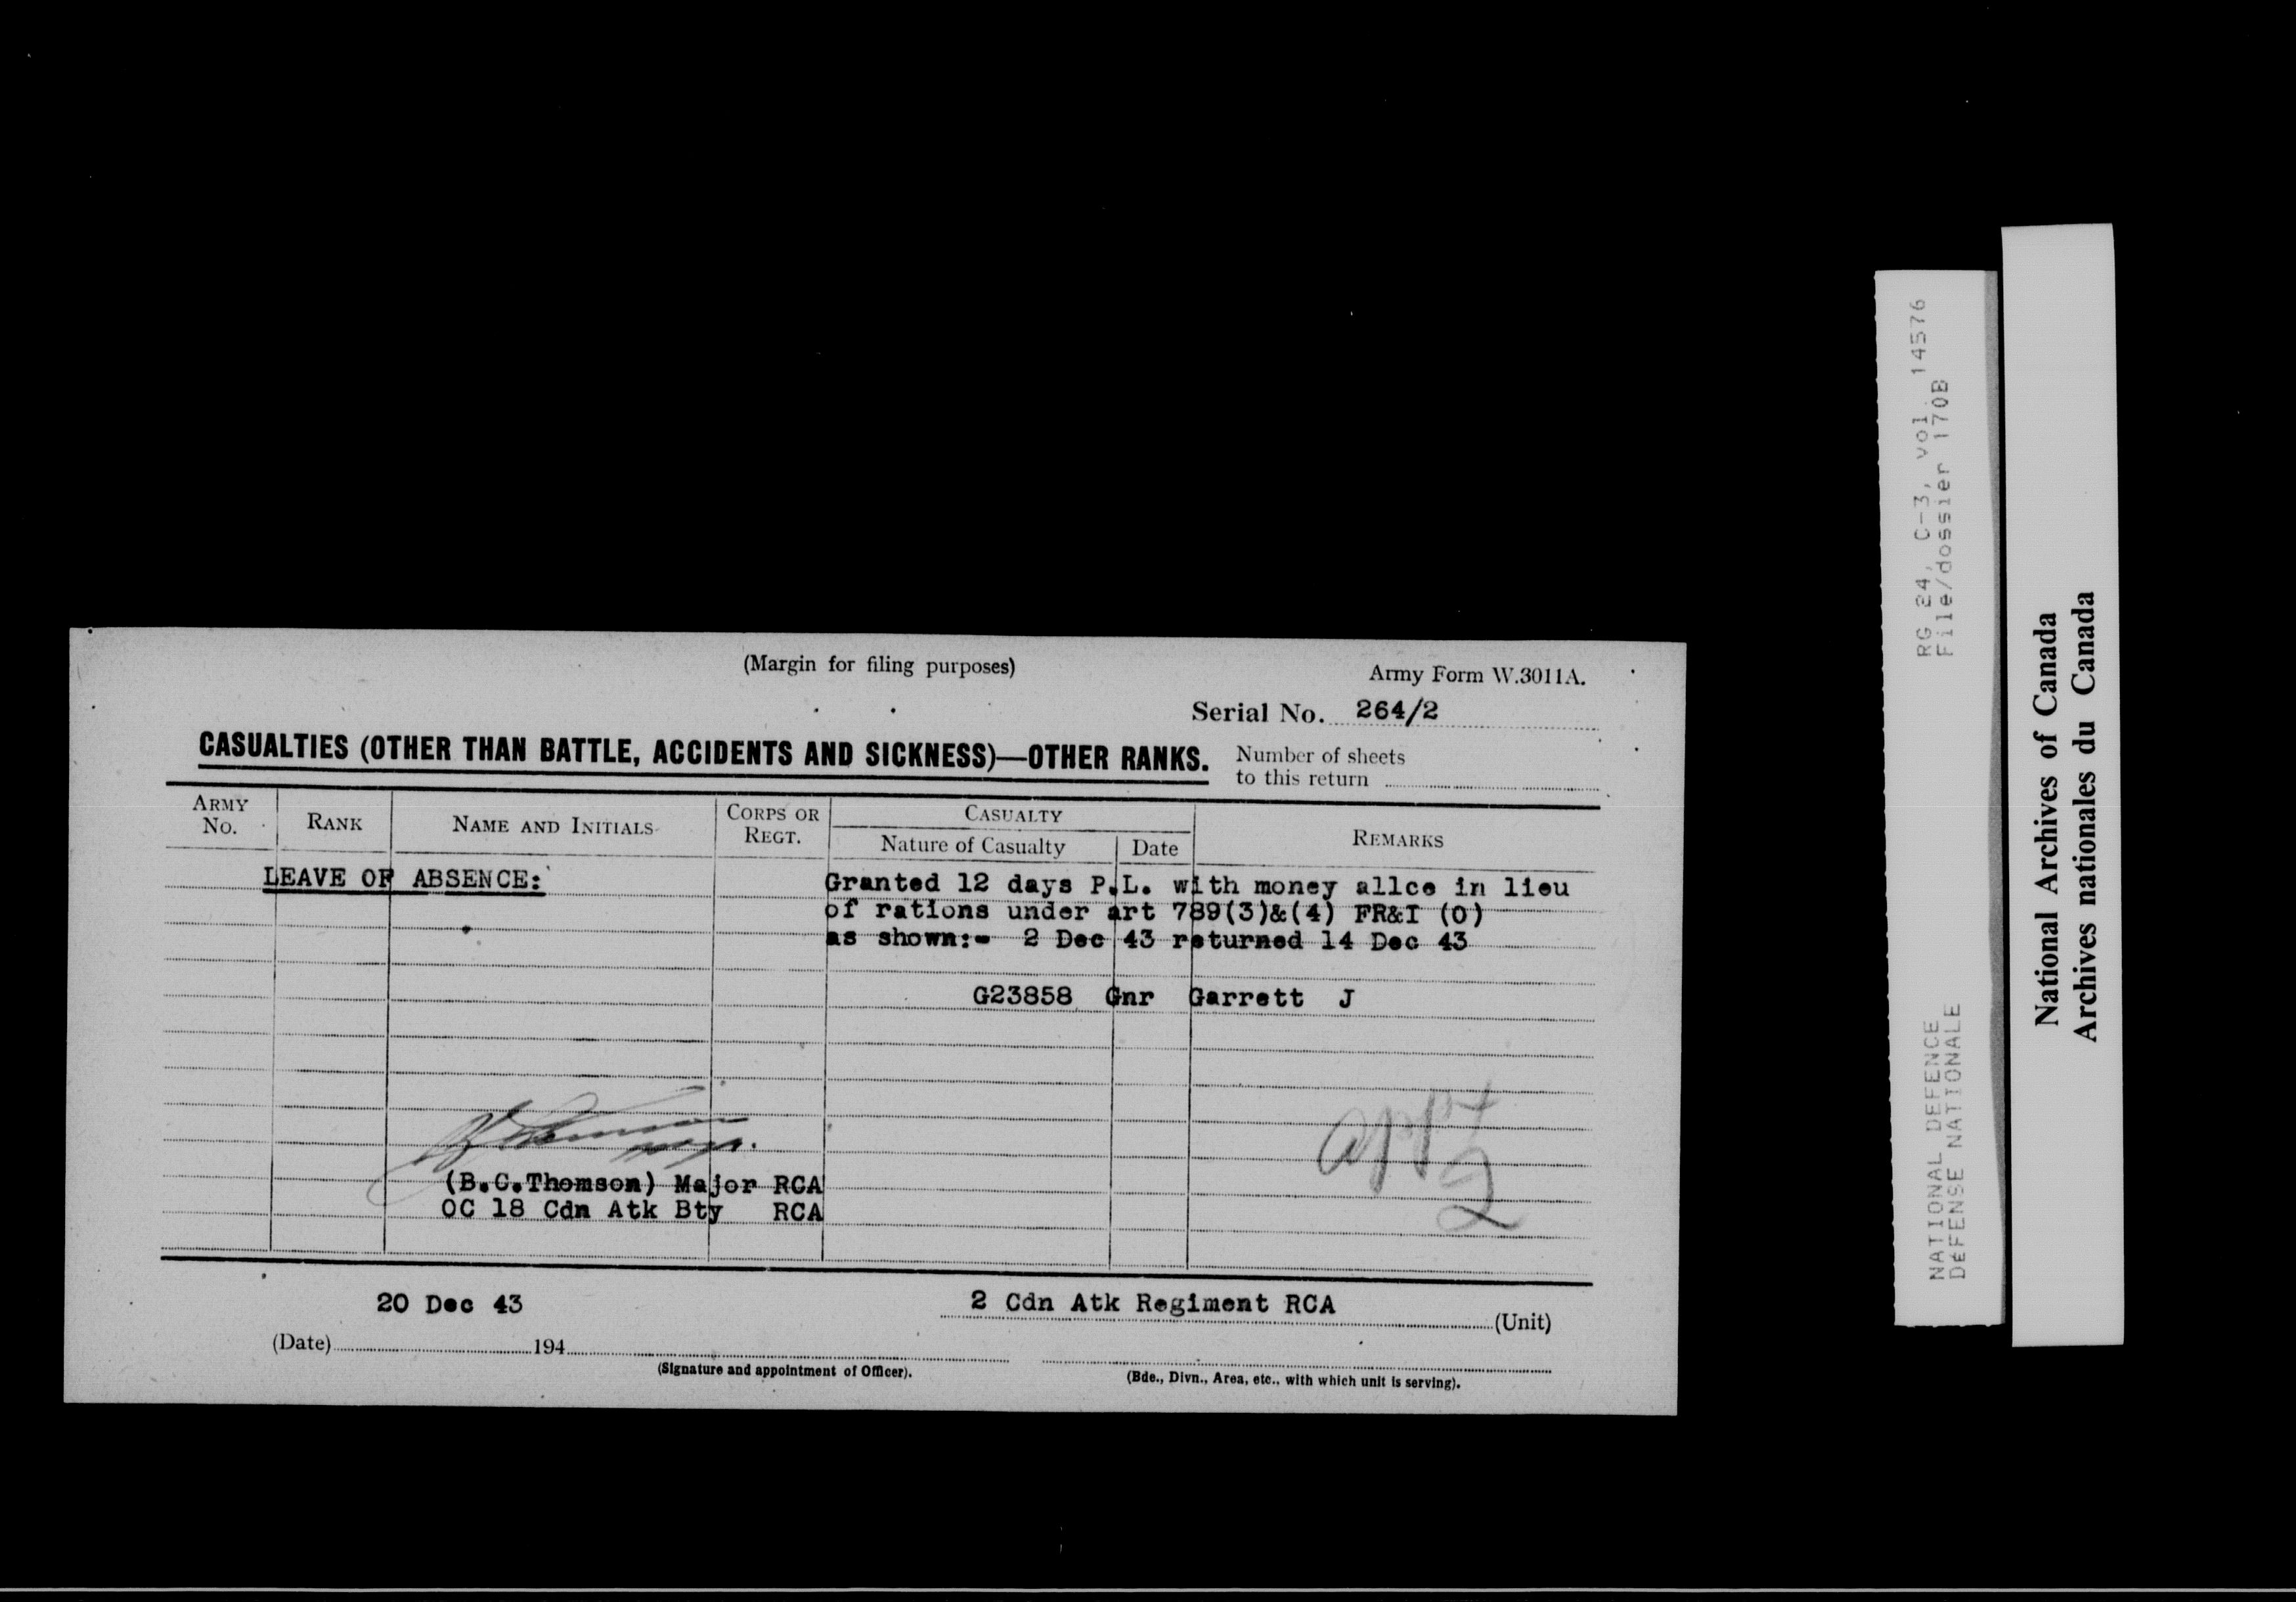 (Margin for filing purposes)
Army Form W.3011A.
Serial No. 264/2
CASUALTIES (OTHER THAN BATTLE, ACCIDENTS AND SICKNESS)—OTHER RANKS.
Number of sheets
to this return
ARMY No.
RANK
NAME AND INITIALS
CORPS OR REGT.
CASUALTY
Nature of Casualty
Date
REMARKS
LEAVE OF ABSENCE:
Granted 12 days P.L. with money allce in lieu
of rations under art 789(3)&(4) FR&I (O)
as shown:- 2 Dec 43 returned 14 Dec 43
G23858 Gnr Garrett J
(B.C.Thomson) Major RCA
OC 18 Cdn Atk Bty RCA
20 Dec 43
2 Cdn Atk Regiment RCA
(Unit)
(Date) 194
(Signature and appointment of Officer).
(Bde., Divn., Area, etc., with which unit is serving).
RG 24, C-3, vol. 14576
File/dossier 170B
NATIONAL DEFENCE
DEFENSE NATIONALE
National Archives of Canada
Archives nationales du Canada